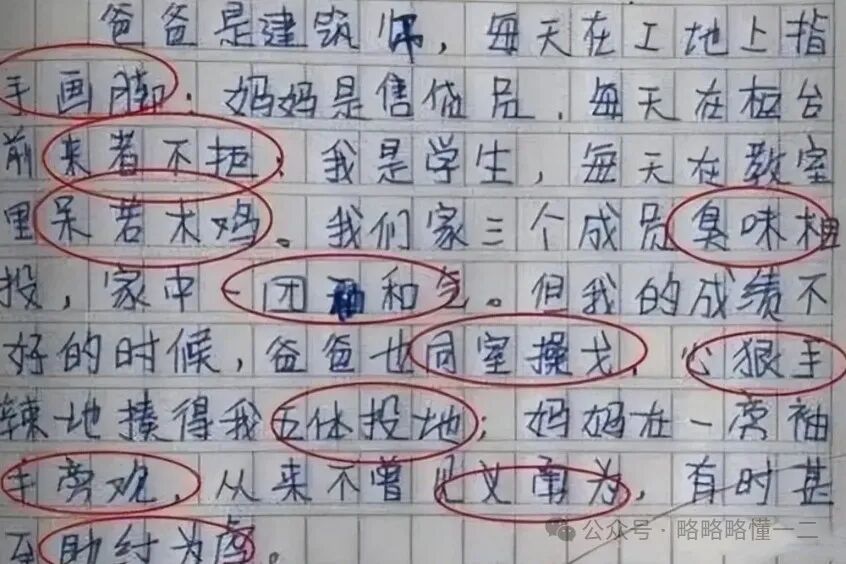 爸爸是建筑师，每天在工地上指
手画脚；妈妈是售贷员，每天在柜台
前来者不拒，我是学生，每天在教室
里呆若木鸡。我们家三个成员臭味相
投，家中一团和气。但我的成绩不
好的时候，爸爸也同室操戈，心狠手
辣地揍得我五体投地；妈妈在一旁袖
手旁观，从来不曾见义勇为，有时甚
至助纣为虐。
公众号·略略略懂一二